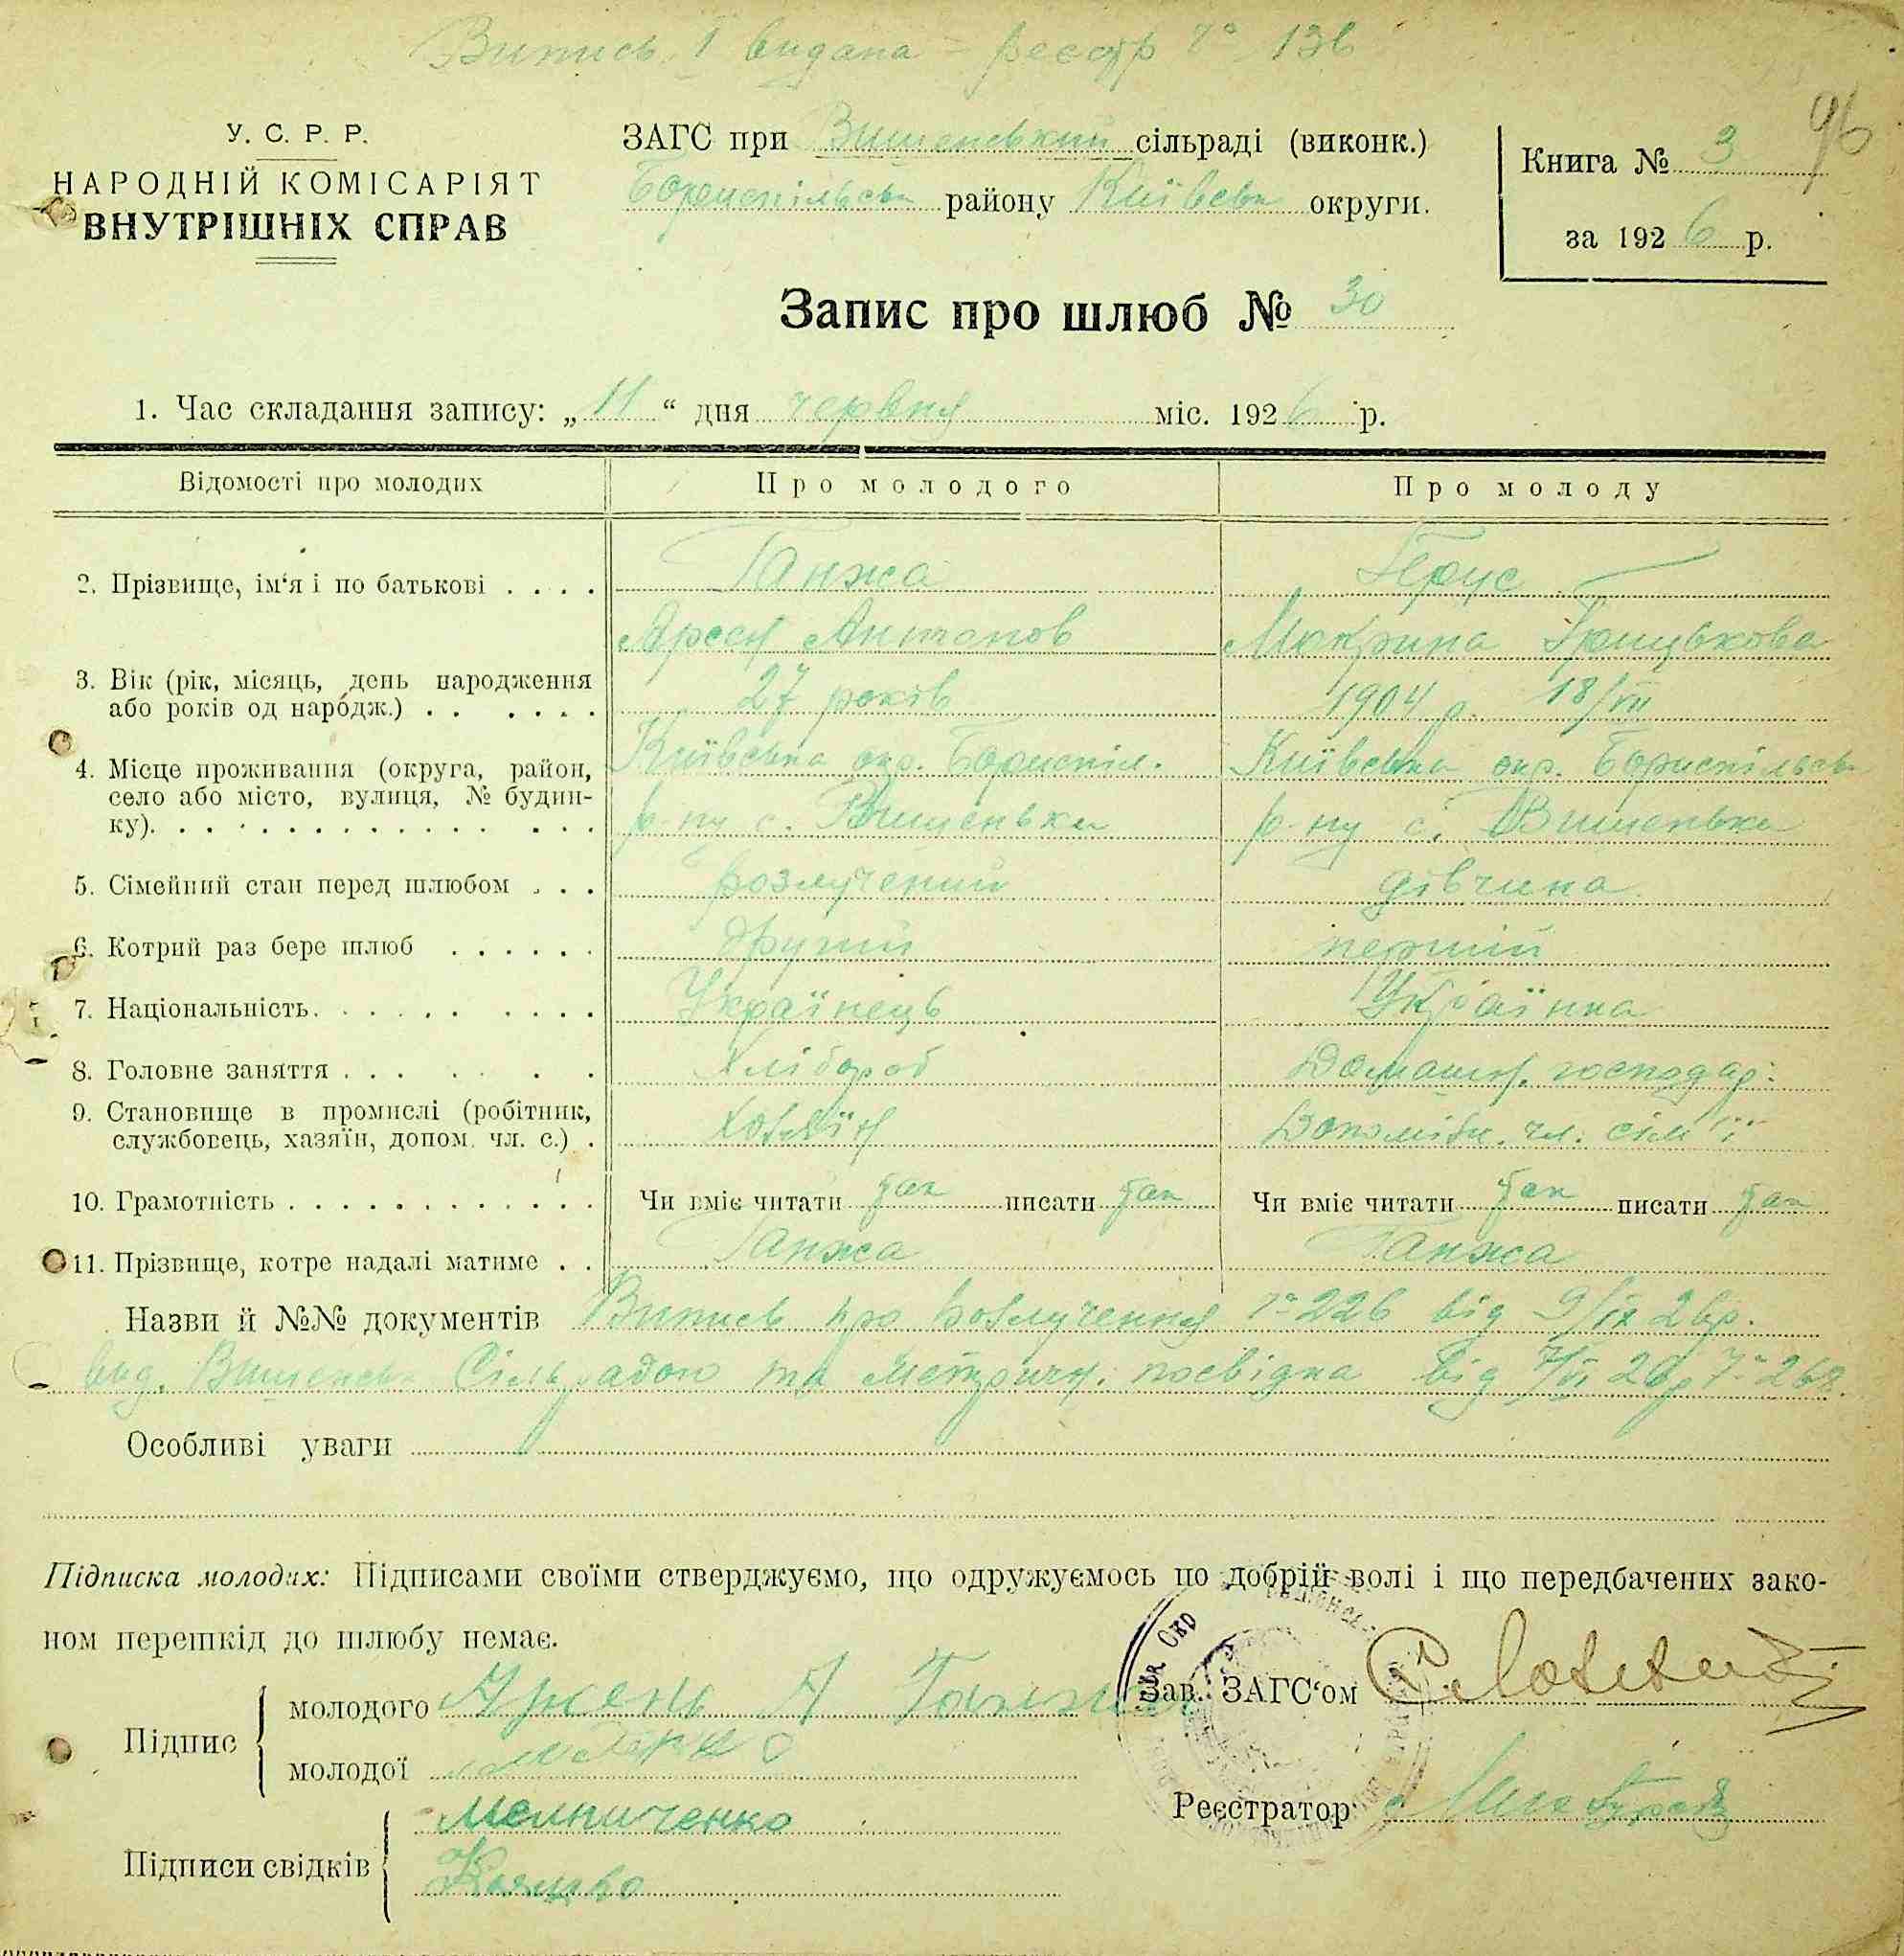 Випись I видана – реєстр № 136
96
У. С. Р. Р.
НАРОДНІЙ КОМІСАРІЯТ
ВНУТРІШНІХ СПРАВ
ЗАГС при Вишенський сільраді (виконк.)
Бориспільськ району Київськ округи.
Книга № 3
за 1926 р.
Запис про шлюб № 30
1. Час складання запису: „11“ дня червня міс. 1926 р.
Відомості про молодих Про молодого Про молоду
2. Прізвище, ім‘я і по батькові . . . . Ганжа Герус
Арсен Антонов Мокрина Грицькова
3. Вік (рік, місяць, день народження
або років од народж.) . . . . . . 27 років 1904 р. 18/VII
4. Місце проживання (округа, район,
село або місто, вулиця, № будин-
ку). Київська окр. Бориспіл. Київська окр. Бориспільськ
р-ну с. Вишеньки р-ну с. Вишеньки
5. Сімейний стан перед шлюбом . . . розлучений дівчина
6. Котрий раз бере шлюб . . . . . . другий перший
7. Національність. Українець Українка
8. Головне заняття Хлібороб Домашн. господар.
9. Становище в промислі (робітник,
службовець, хазяїн, допом. чл. с.) . Хозяїн Допоміжн. чл. сім'ї
10. Грамотність Чи вміє читати так писати так Чи вміє читати так писати так
11. Прізвище, котре надалі матиме . . Ганжа Ганжа
Назви й №№ документів Випись про розлучення № 226 від 9/IX 26р.
вид. Вишенськ Сільрадою та метричн. посвідка від 7/VI 26р № 268.
Особливі уваги
Підписка молодих: Підписами своїми стверджуємо, що одружуємось по добрій волі і що передбачених зако-
ном перешкід до шлюбу немає.
Підпис
молодого Арсень А Ганжа
молодої
Зав. ЗАГС‘ом
Реєстратор
Підписи свідків
Мельниченко
Коцюко